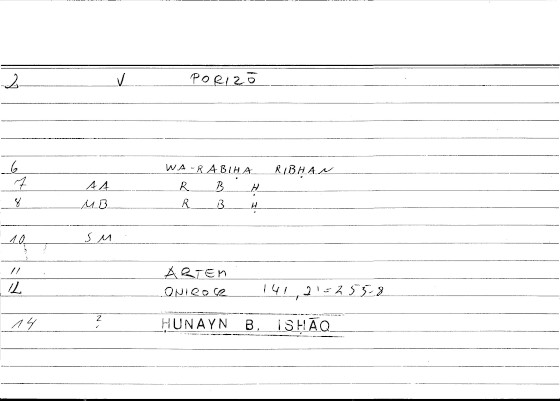 2 V PORIZŌ
6 WA-RABIḤA RIBḤAN
7 AA R B Ḥ
8 MB R B Ḥ
10 SM
11 ARTEM
12 ONIROCR 141, 21 = 255.8
14 ? ḤUNAYN B. ISḤĀQ